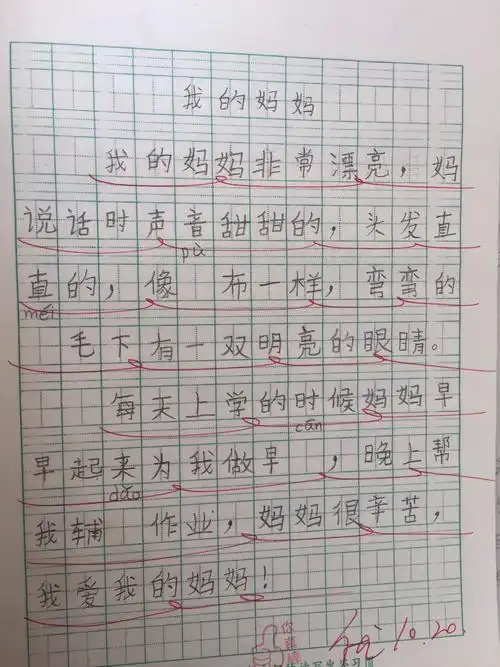 我的妈妈
我的妈妈非常漂亮，妈
说话时声音甜甜的，头发直
pù
直的，像 布一样，弯弯的
méi
毛下有一双明亮的眼睛。
每天上学的时候妈妈早
cān
早起来为我做早 ，晚上帮
dǎo
我辅 作业，妈妈很辛苦，
我爱我的妈妈！
10.20